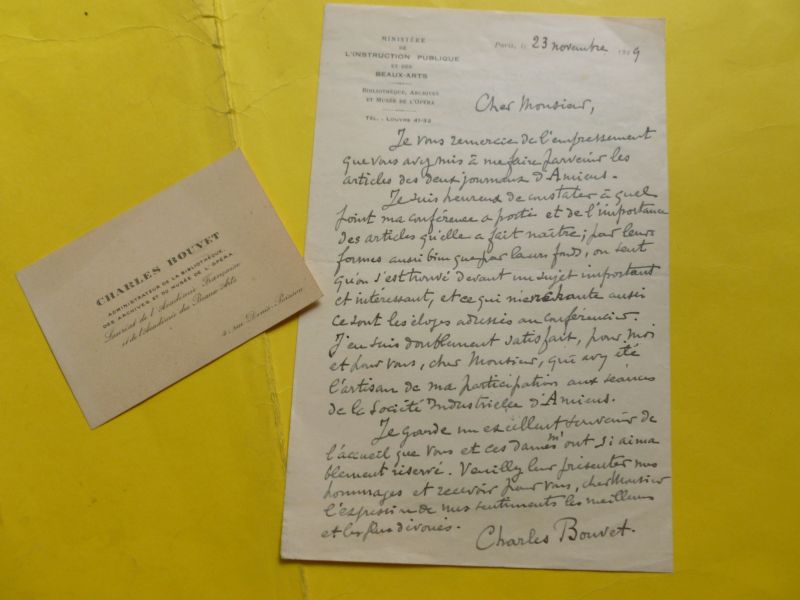 MINISTÈRE
DE
L'INSTRUCTION PUBLIQUE
ET DES
BEAUX-ARTS
BIBLIOTHÈQUE, ARCHIVES
ET MUSÉE DE L'OPÉRA
TÉL. - LOUVRE 41-32
Paris, le 23 novembre 1929
Cher Monsieur,
Je vous remercie de l'empressement
que vous avez mis à me faire parvenir les
articles des deux journaux d'Amiens.
Je suis heureux de constater à quel
point ma conférence a porté et de l'importance
des articles qu'elle a fait naître; par leurs
formes aussi bien que par leurs fonds, on sent
qu'on s'est trouvé devant un sujet important
et intéressant, et ce qui m'enchante aussi
ce sont les éloges adressés au conférencier.
J'en suis doublement satisfait, pour moi
et pour vous, cher Monsieur, qui avez été
l'artisan de ma participation aux séances
de la Société Industrielle d'Amiens.
Je garde un excellent souvenir de
l'accueil que vous et ces dames m'ont si aima
blement réservé. Veuillez leur présenter mes
hommages et recevoir pour vous, cher Monsieur
l'expression de mes sentiments les meilleurs
et les plus dévoués.
Charles Bouvet.
CHARLES BOUVET
ADMINISTRATEUR DE LA BIBLIOTHÈQUE,
DES ARCHIVES ET DU MUSÉE DE L'OPÉRA
Lauréat de l'Académie Française
et de l'Académie des Beaux-Arts
rue Denis-Poisson